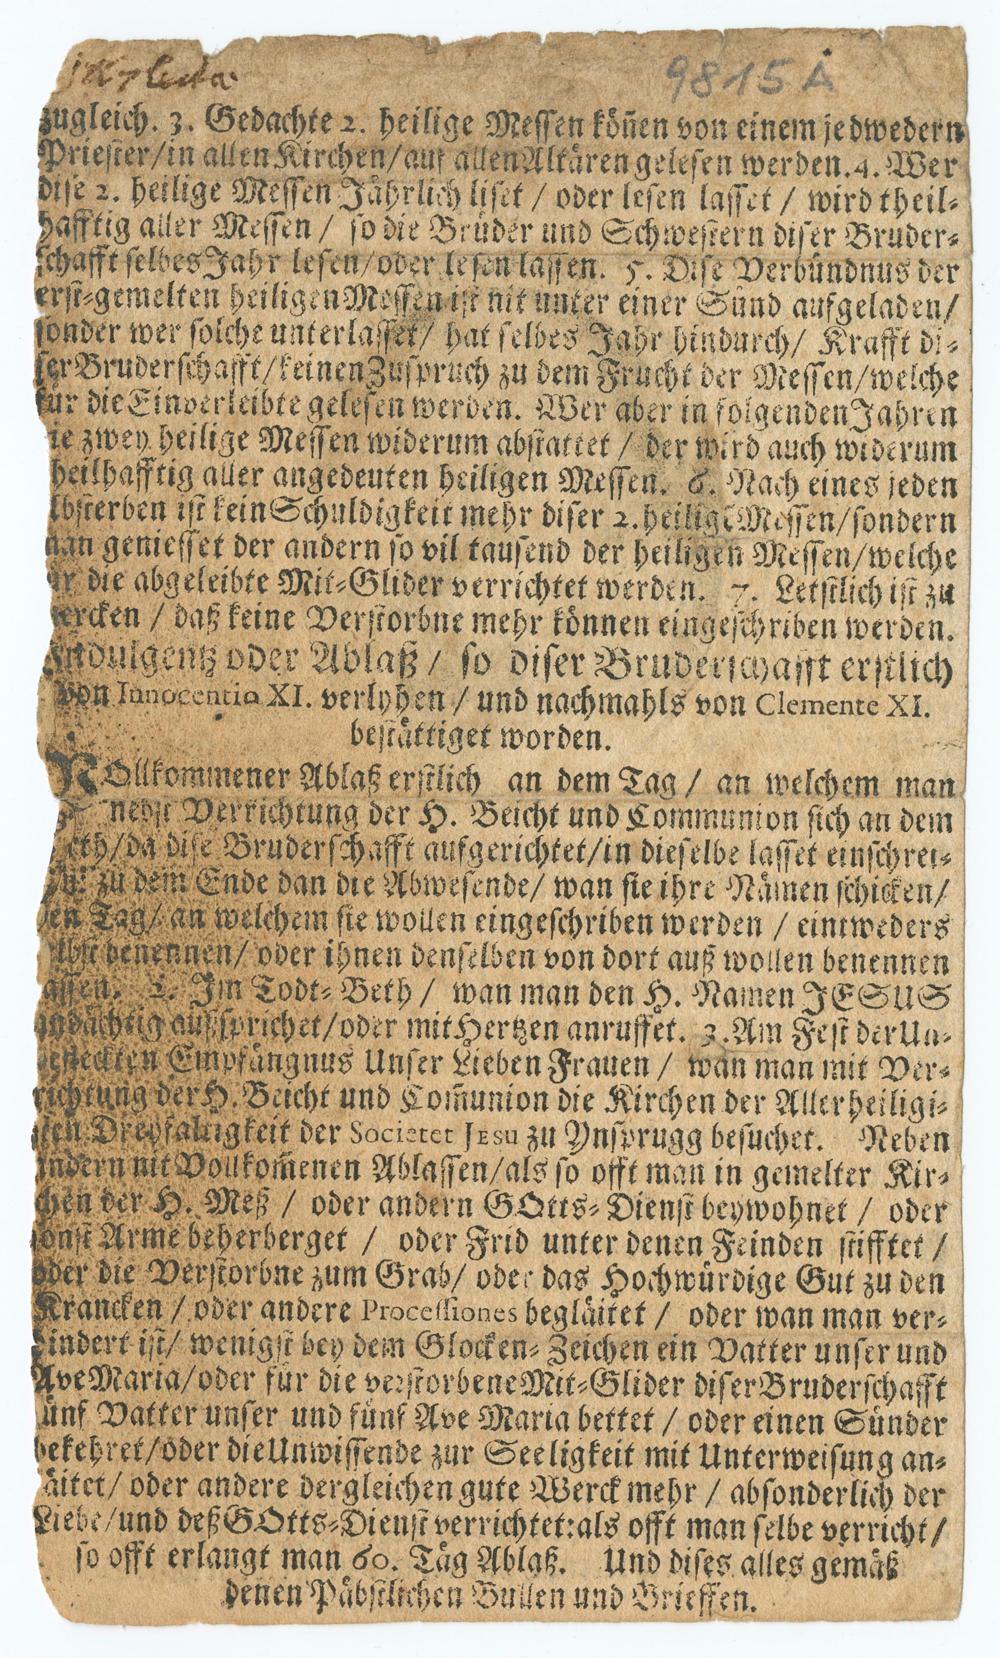 9815 A
zugleich. 3. Gedachte 2. heilige Messen köñen von einem jedwedern
Priester/in allen Kirchen/auf allen Altären gelesen werden. 4. Wer
dise 2. heilige Messen Jährlich liset / oder lesen lasset / wird theil-
hafftig aller Messen / so die Brüder und Schwestern diser Bruder-
schafft selbes Jahr lesen/oder lesen lassen. 5. Dise Verbündnus der
erst-gemelten heiligen Messen ist nit unter einer Sünd aufgeladen/
sonder wer solche unterlasset/ hat selbes Jahr hindurch/ Krafft di-
ser Bruderschafft/keinen Zuspruch zu dem Frucht der Messen/welche
für die Einverleibte gelesen werden. Wer aber in folgenden Jahren
ie zwey heilige Messen widerum abstattet / der wird auch widerum
heilhafftig aller angedeuten heiligen Messen. 6. Nach eines jeden
lbsterben ist kein Schuldigkeit mehr diser 2. heilige Messen/sondern
man geniesset der andern so vil tausend der heiligen Messen/welche
ür die abgeleibte Mit-Glider verrichtet werden. 7. Letstlich ist zu
mercken / daß keine Verstorbne mehr können eingeschriben werden.
Indulgentz oder Ablaß / so diser Bruderschafft erstlich
von Innocentio XI. verlyhen / und nachmahls von Clemente XI.
bestättiget worden.
VOllkommener Ablaß erstlich an dem Tag / an welchem man
nebst Verrichtung der H. Beicht und Communion sich an dem
eth/da dise Bruderschafft aufgerichtet/in dieselbe lasset einschrei-
zu dem Ende dan die Abwesende/ wan sie ihre Nämen schicken/
den Tag/ an welchem sie wollen eingeschriben werden / eintweders
elbst benennen/ oder ihnen denselben von dort auß wollen benennen
assen. 2. Im Todt-Beth / wan man den H. Namen JESUS
andächtig aussprichet/oder mit Hertzen anruffet. 3. Am Fest der Un-
befleckten Empfängnus Unser Lieben Frauen / wan man mit Ver-
richtung der H. Beicht und Com̃union die Kirchen der Allerheiligi-
sten Dreyfaltigkeit der Societet Jesu zu Ynsprugg besuchet. Neben
andern nit Vollkom̃enen Ablassen/als so offt man in gemelter Kir-
chen der H. Meß / oder andern GOtts-Dienst beywohnet / oder
sonst Arme beherberget / oder Frid unter denen Feinden stifftet /
oder die Verstorbne zum Grab/ oder das Hochwürdige Gut zu den
Krancken / oder andere Processiones begläitet / oder wan man ver-
hindert ist/ wenigst bey dem Glocken-Zeichen ein Vatter unser und
Ave Maria/oder für die verstorbene Mit-Glider diser Bruderschafft
fünf Vatter unser und fünf Ave Maria bettet / oder einen Sünder
bekehret/oder die Unwissende zur Seeligkeit mit Unterweisung an-
läitet/ oder andere dergleichen gute Werck mehr / absonderlich der
Liebe/und deß GOtts-Dienst verrichtet: als offt man selbe verricht/
so offt erlangt man 60. Täg Ablaß. Und dises alles gemäß
denen Päbstlichen Bullen und Brieffen.